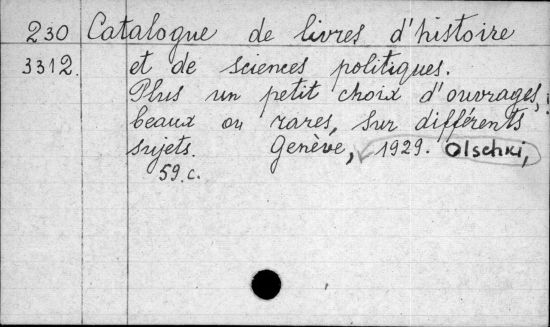 230 Catalogue de livres d'histoire
3312. et de sciences politiques.
Plus un petit choix d'ouvrages,
beaux ou rares, sur différents
sujets. Genève, 1929. Olschki,
59.c.